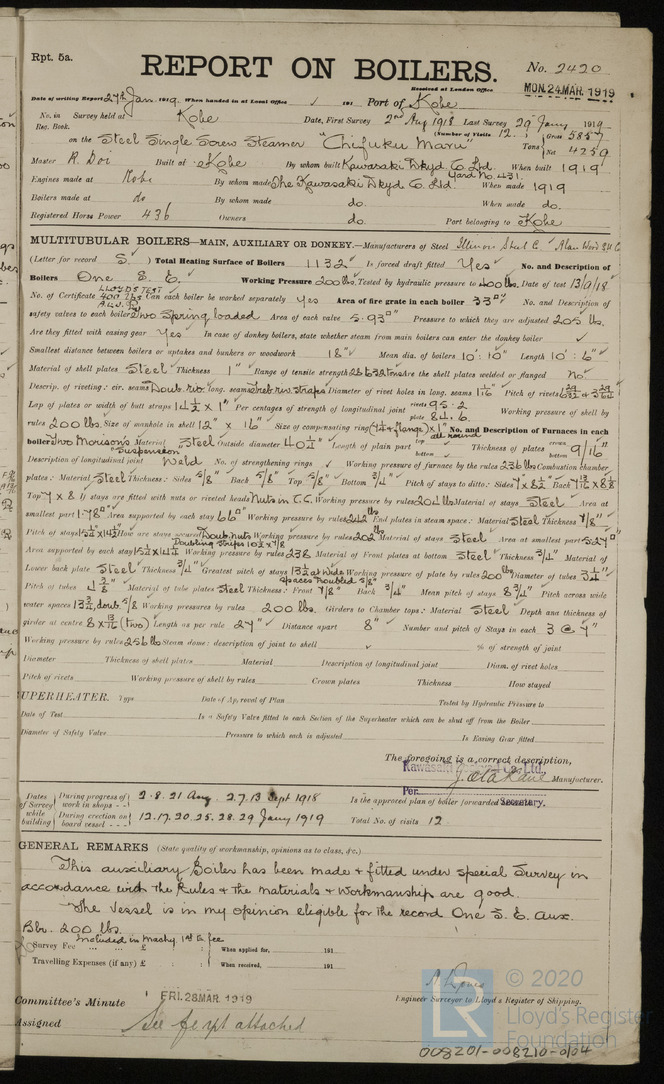 Rpt. 5a.
REPORT ON BOILERS.
No. 2420
Received at London Office
MON. 24 MAR. 1919
Date of writing Report 27th Jan 1919 When handed in at Local Office 191 Port of Kobe
No. in Survey held at Kobe Date, First Survey 2nd Aug 1918 Last Survey 29 Jany 1919
Reg. Book. (Number of Visits 12.) Gross 5857
on the Steel Single Screw Steamer "Chifuku Maru" Tons Net 4259
Master R. Doi Built at Kobe By whom built Kawasaki Dkyd. Co. Ltd. Yard No. 431. When built 1919
Engines made at Kobe By whom made The Kawasaki Dkyd Co. Ltd When made 1919
Boilers made at do By whom made do. When made do.
Registered Horse Power 436 Owners do. Port belonging to Kobe
MULTITUBULAR BOILERS—MAIN, AUXILIARY OR DONKEY.—Manufacturers of Steel Illinois Steel C Alan Wood
(Letter for record S.) Total Heating Surface of Boilers 1132 Is forced draft fitted Yes No. and Description of
Boilers One S. E. Working Pressure 200 lbs. Tested by hydraulic pressure to 400 lbs. Date of test 13/9/18
LLOYD'S TEST
No. of Certificate 400 lbs Can each boiler be worked separately Yes Area of fire grate in each boiler 33 □' No. and Description of
safety valves to each boiler Two Spring loaded Area of each valve 5.93 □" Pressure to which they are adjusted 205 lbs.
Are they fitted with easing gear Yes In case of donkey boilers, state whether steam from main boilers can enter the donkey boiler
Smallest distance between boilers or uptakes and bunkers or woodwork 18" Mean dia. of boilers 10'. 10" Length 10'. 6"
Material of shell plates Steel Thickness 1" Range of tensile strength 28 & 32 tons Are the shell plates welded or flanged No
Descrip. of riveting: cir. seams Doub. riv. long. seams Treb riv. straps Diameter of rivet holes in long. seams 1 1/16" Pitch of rivets
Lap of plates or width of butt straps 14 1/2 x 1" Per centages of strength of longitudinal joint rivets 95.2 plate 84.6. Working pressure of shell by
rules 200 lbs. Size of manhole in shell 12" x 16" Size of compensating ring No. and Description of Furnaces in each
boiler Two Morison's Suspension Material Steel Outside diameter 40 1/4" Length of plain part top bottom Thickness of plates crown bottom 9/16" all round
Description of longitudinal joint Weld No. of strengthening rings Working pressure of furnace by the rules 236 lbs Combustion chamber
plates: Material Steel Thickness: Sides 5/8" Back 5/8" Top 5/8" Bottom 3/4" Pitch of stays to ditto: Sides 7 x 8 1/2" Back
Top 7 x 8 If stays are fitted with nuts or riveted heads Nuts in C.C. Working pressure by rules 204 lbs Material of stays Steel Area at
smallest part 1.78 □" Area supported by each stay 66 □" Working pressure by rules 242 lbs End plates in steam space: Material Steel Thickness 7/8"
Pitch of stays 15 1/4" x 14 1/2" How are stays secured Doub. nuts Working pressure by rules 202 lbs Material of stays Steel Area at smallest part 5.27 □"
Doubling strips 10 1/2 x 7/8
Area supported by each stay 15 1/4 x 14 1/2 Working pressure by rules 238 Material of Front plates at bottom Steel Thickness 3/4" Material of
Lower back plate Steel Thickness 3/4" Greatest pitch of stays 13 1/2 at wide Working pressure of plate by rules 200 lbs Diameter of tubes 3 1/4"
spaces troubled 5/8"
Pitch of tubes 4 3/8" Material of tube plates Steel Thickness: Front 7/8" Back 3/4" Mean pitch of stays 8 3/4" Pitch across wide
water spaces 13 1/2, doub. 5/8 Working pressures by rules 200 lbs. Girders to Chamber tops: Material Steel Depth and thickness of
girder at centre 8 x 13/16 (two) Length as per rule 24" Distance apart 8" Number and pitch of Stays in each 3 @ 7"
Working pressure by rules 256 lbs Steam dome: description of joint to shell % of strength of joint
Diameter Thickness of shell plates Material Description of longitudinal joint Diam. of rivet holes
Pitch of rivets Working pressure of shell by rules Crown plates Thickness How stayed
UPERHEATER. Type Date of Approval of Plan Tested by Hydraulic Pressure to
Date of Test Is a Safety Valve fitted to each Section of the Superheater which can be shut off from the Boiler
Diameter of Safety Valve Pressure to which each is adjusted Is Easing Gear fitted
The foregoing is a correct description,
Manufacturer.
Per Secretary.
Dates of Survey while building During progress of work in shops - - 2.8.21 Aug. 2.7.13 Sept 1918 Is the approved plan of boiler forwarded
During erection on board vessel - - - 12.17.20.25.28.29 Jany 1919 Total No. of visits 12
GENERAL REMARKS (State quality of workmanship, opinions as to class, &c.)
This auxiliary Boiler has been made & fitted under special Survey in
accordance with the Rules & the materials & workmanship are good.
The vessel is in my opinion eligible for the record One S. E. Aux.
Blr. 200 lbs.
Survey Fee ... £ Included in Machy. 1st E. fee When applied for, 191
Travelling Expenses (if any) £ When received, 191
Engineer Surveyor to Lloyd's Register of Shipping.
Committee's Minute FRI. 28 MAR. 1919
Assigned See fe rpt attached
© 2020
Lloyd's Register
Foundation
008201-008210-0104